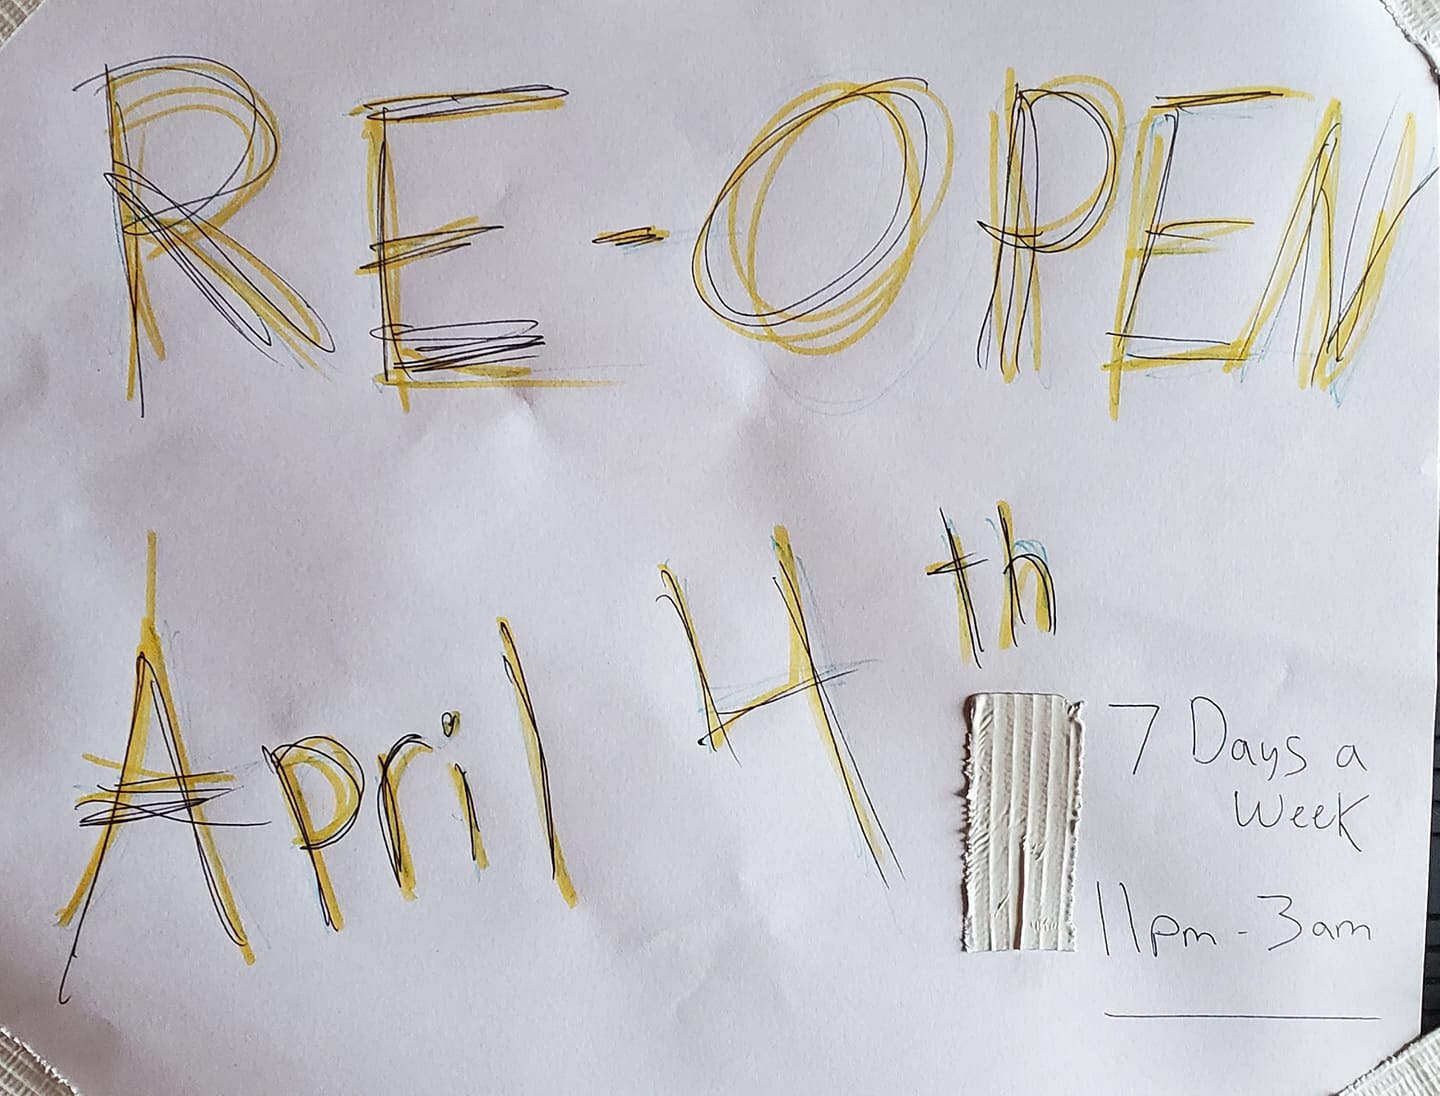 RE-OPEN
April 4th
7 Days a
Week
11pm - 3am